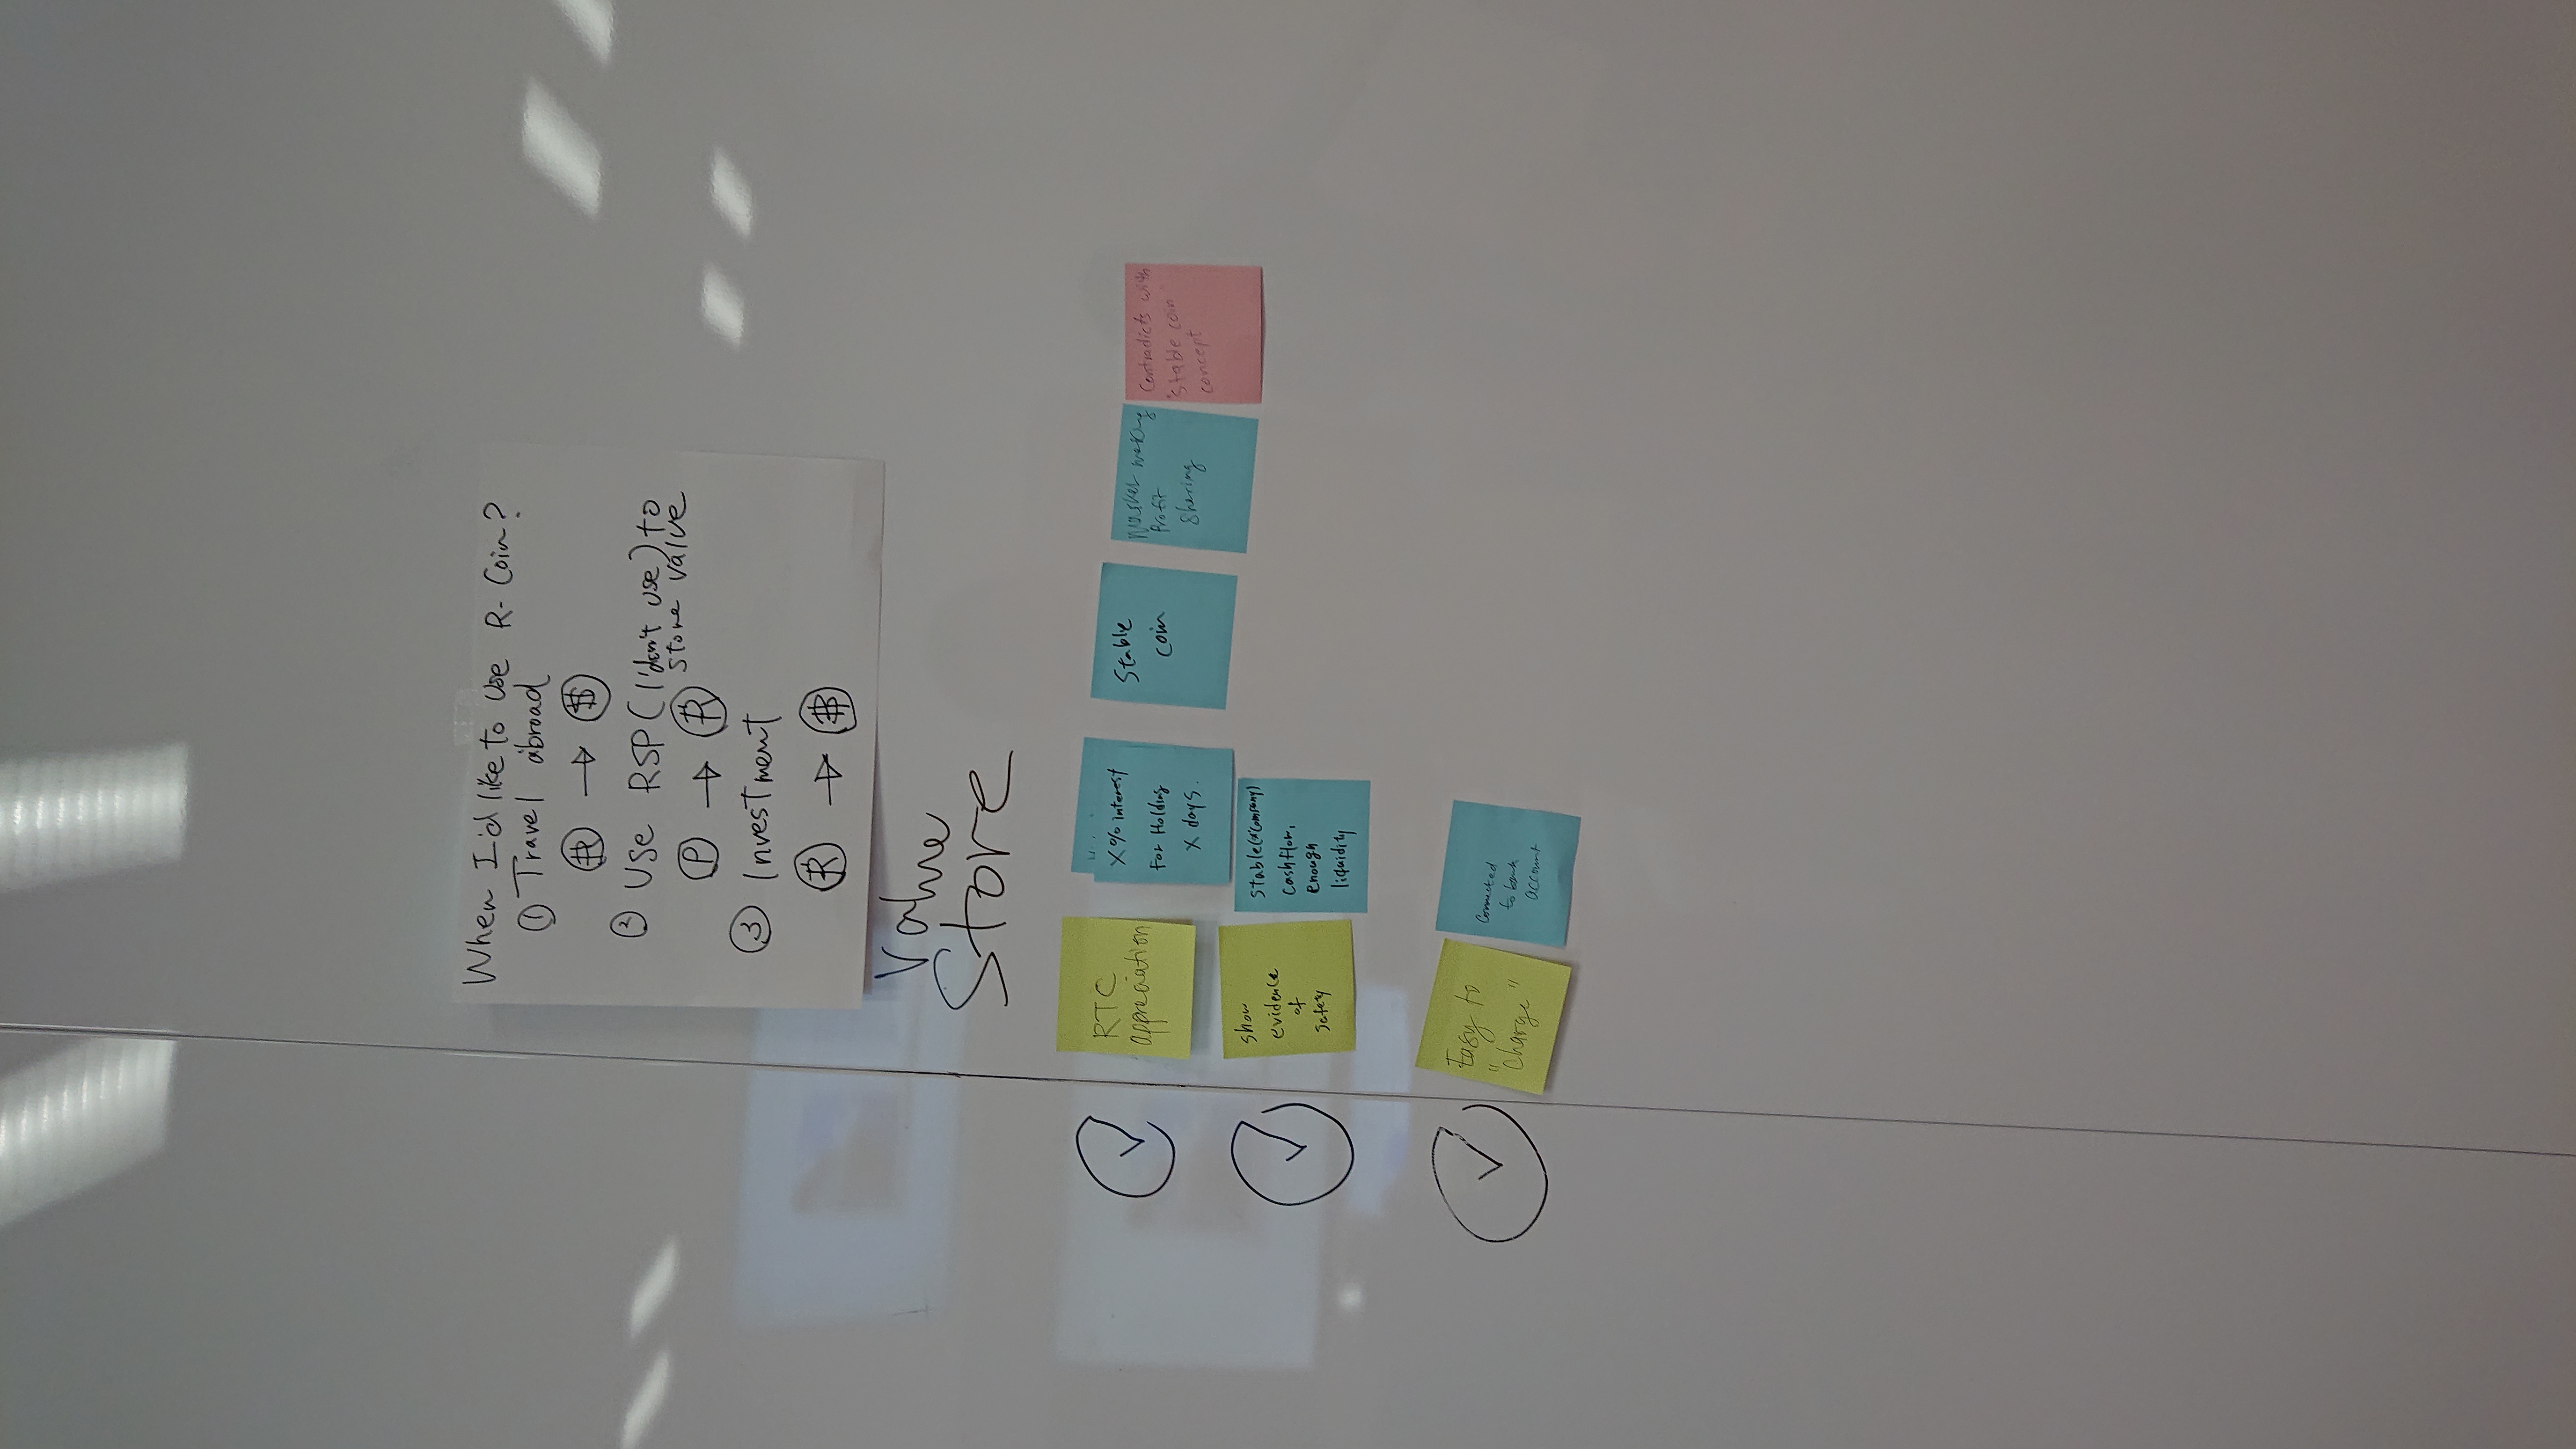 When I'd like to use R-Coin?
① Travel abroad
R → $
② Use RSP (I don't use) to
store value
P → R
③ Investment
R → ₿
Value
Store
RTC
appreciation
X% interest
For Holding
X days.
Stable
coin
Market making
Profit
Sharing
Contradicts with
"stable coin"
concept
Show
evidence
of
safety
Stable
cashflow,
enough
liquidity
Easy to
"Charge"
Connected
to bank
account